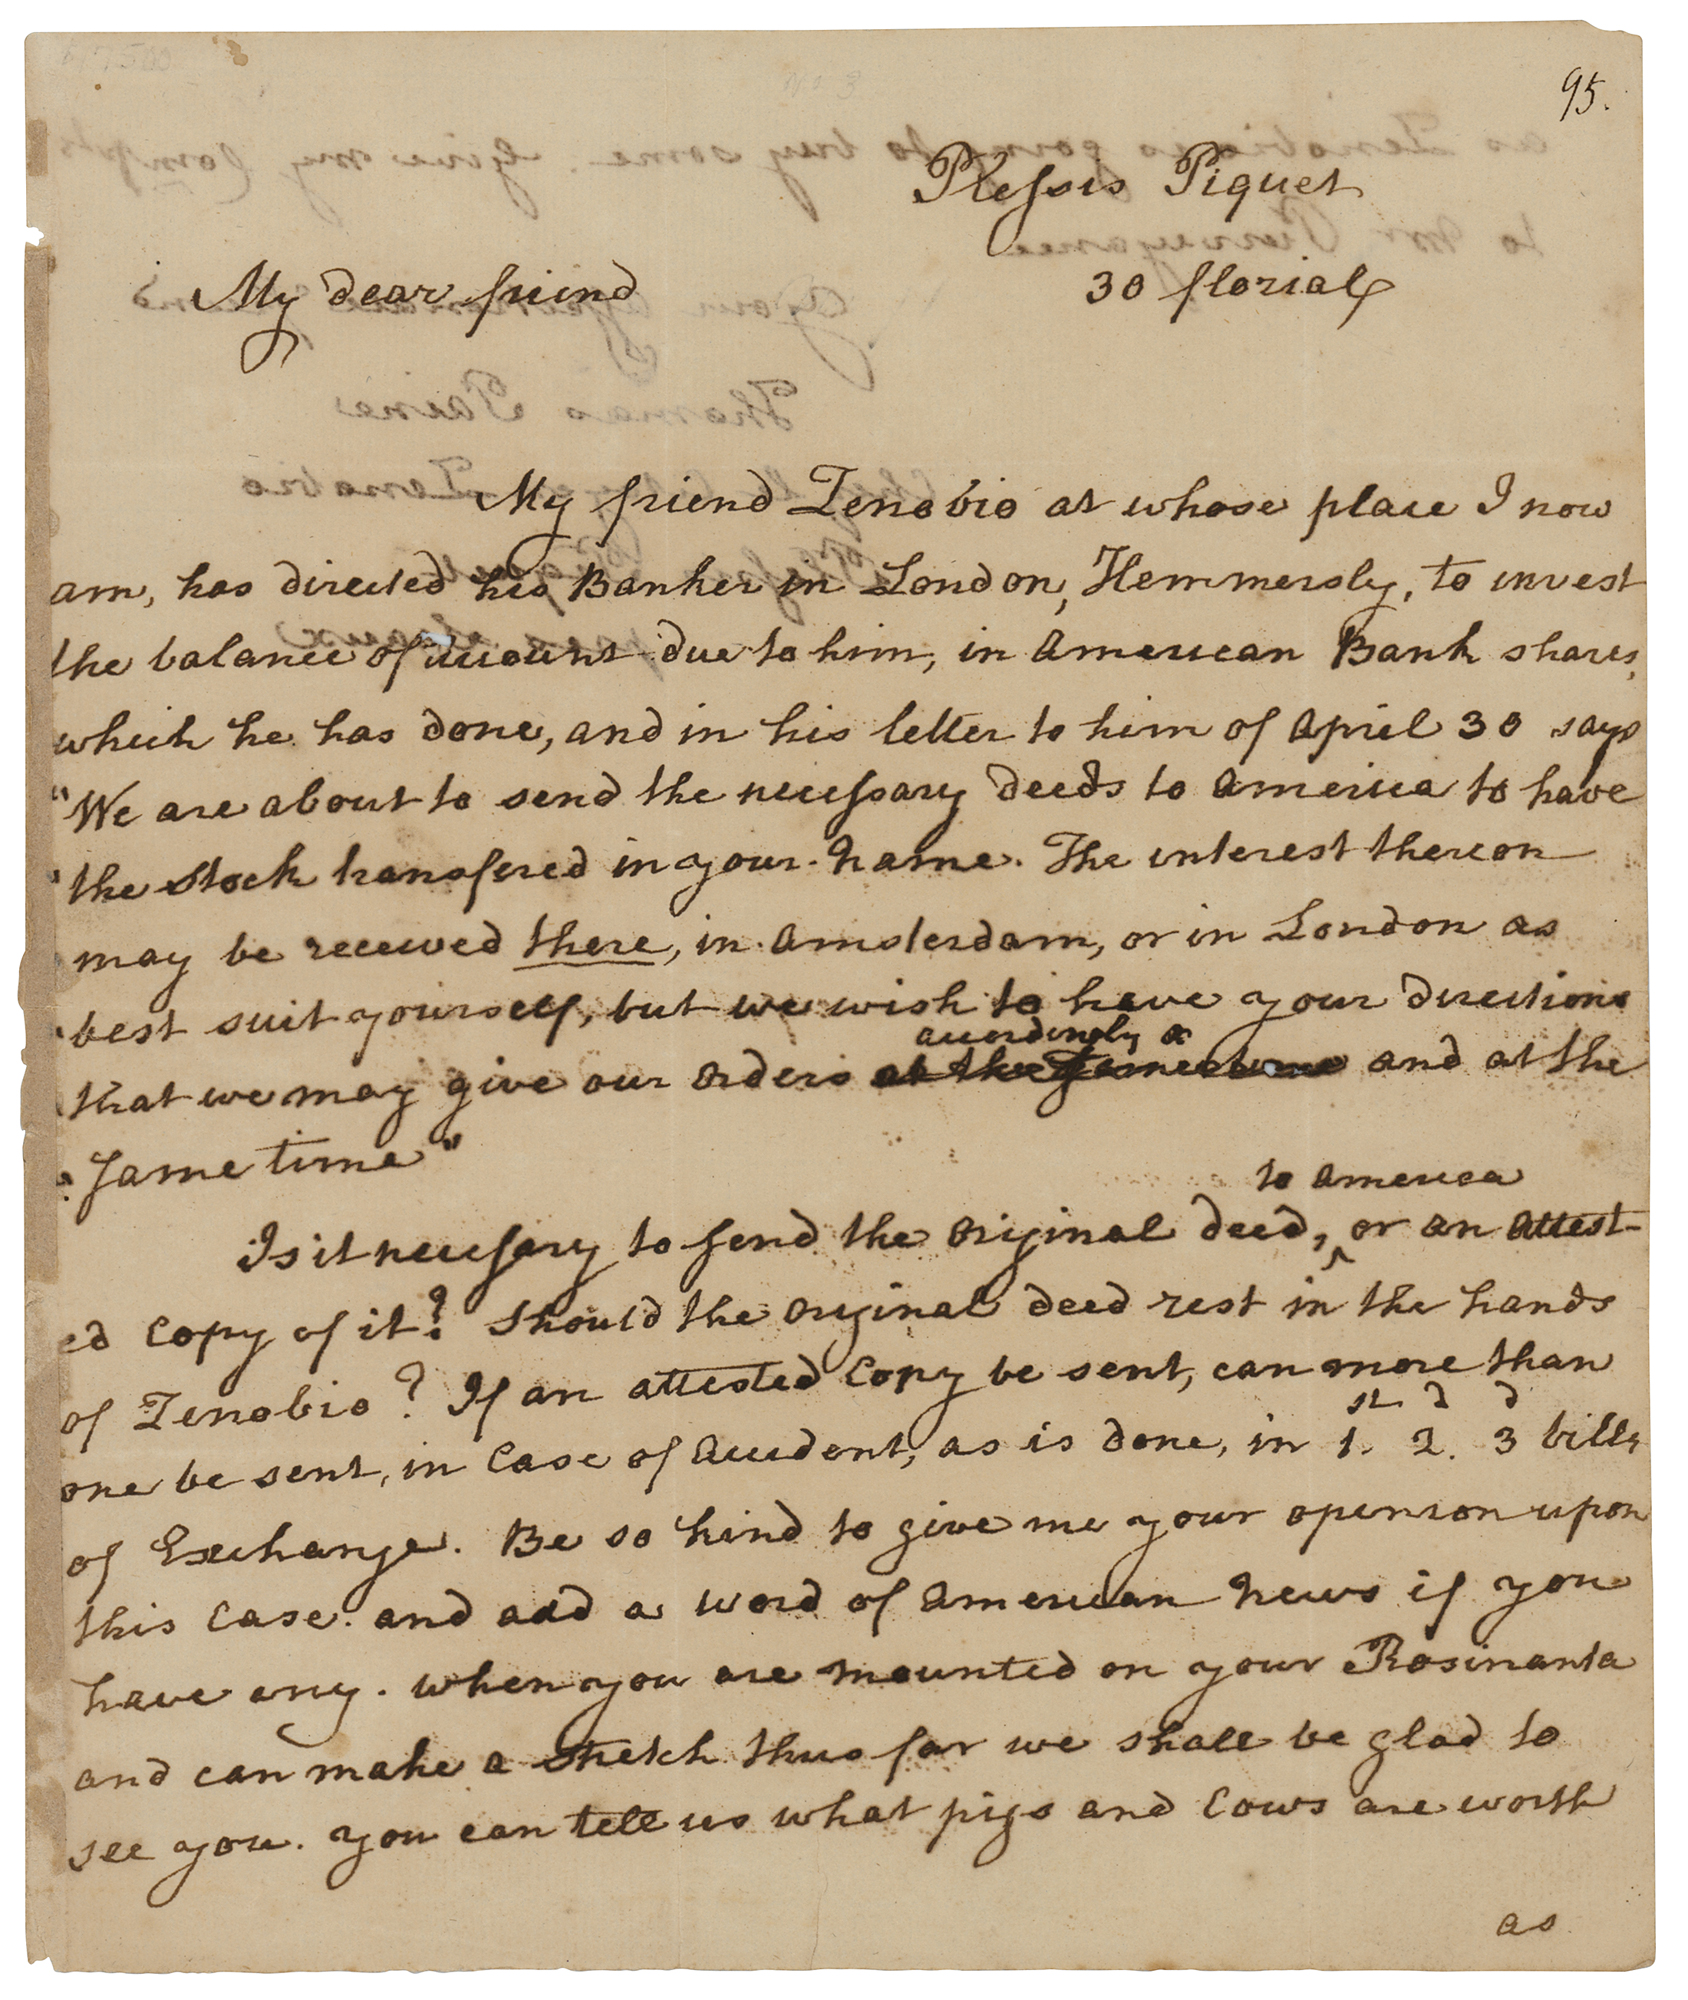 95.
Plessis Piquet
30 florial
My dear friend
My friend Zenobio at whose place I now
am, has directed his Banker in London, Hemmersly, to invest
the balance of account due to him, in American Bank shares,
which he has done, and in his letter to him of April 30 says
"We are about to send the necessary deeds to America to have
"the stock transfered in your name. The interest thereon
may be received there, in Amsterdam, or in London as
"best suit yourself, but we wish to have your directions
accordingly &
that we may give our orders at the same time and at the
"same time"
to America
Is it necessary to send the original deed, ‸ or an attest-
ed Copy of it? Should the original deed rest in the hands
of Zenobio? If an attested Copy be sent, can more than
st d d
one be sent, in Case of Accident, as is done, in 1. 2. 3 bills
of Exchange. Be so kind to give me your openion upon
this Case. and add a word of American News if you
have any. when you are mounted on your Rosinanta
and can make a stretch thus far we shall be glad to
see you. You can tell us what pigs and Cows are worth
as
as Zenobio is going to buy some. Give my Compts
to Mr
your affectionate friend
Thomas Paine
Zenobio